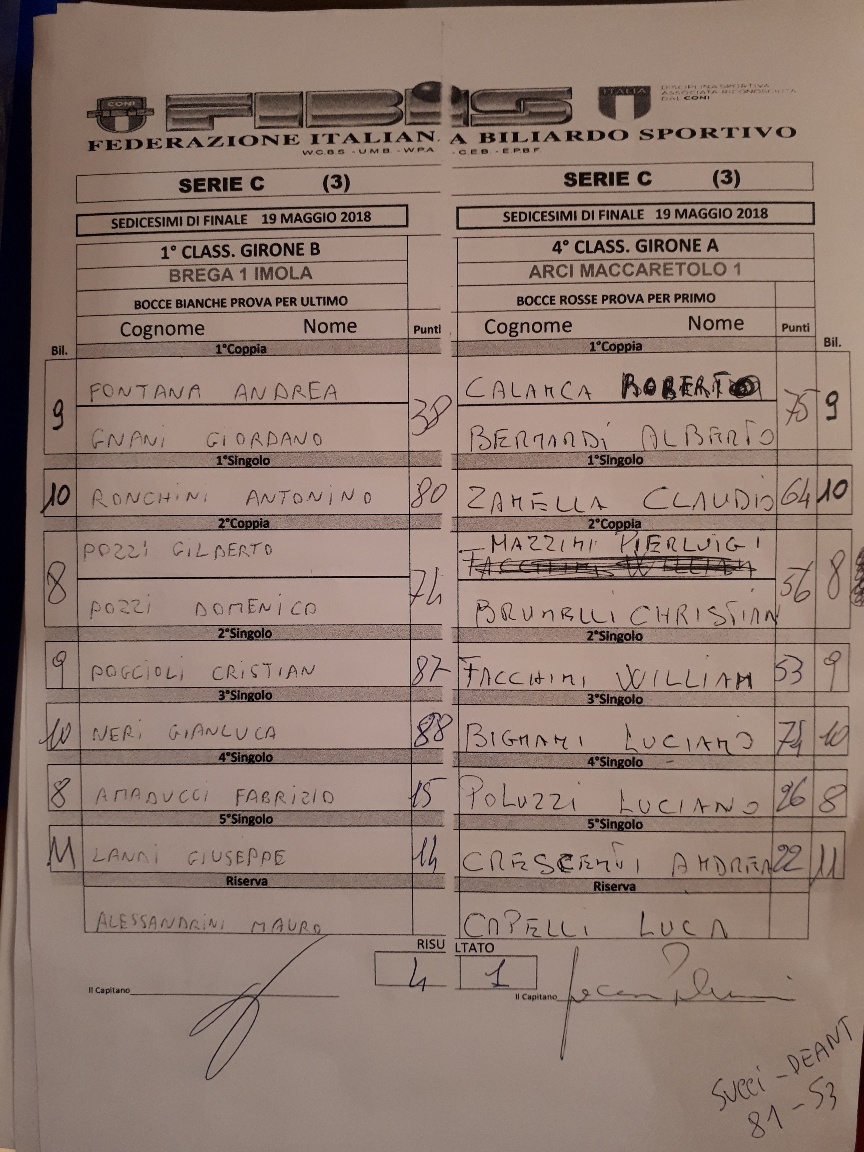 CONI FIBiS ITALIA DISCIPLINA SPORTIVA ASSOCIATA RICONOSCIUTA DAL CONI
FEDERAZIONE ITALIAN A BILIARDO SPORTIVO
W.C.B.S -U.M.B -W.P.A -C.E.B -E.P.B.F
SERIE C (3) SERIE C (3)
SEDICESIMI DI FINALE 19 MAGGIO 2018 SEDICESIMI DI FINALE 19 MAGGIO 2018
1° CLASS. GIRONE B 4° CLASS. GIRONE A
BREGA 1 IMOLA ARCI MACCARETOLO 1
BOCCE BIANCHE PROVA PER ULTIMO BOCCE ROSSE PROVA PER PRIMO
Cognome Nome Punti Cognome Nome Punti
Bil. 1°Coppia 1°Coppia Bil.
FONTANA ANDREA CALAMCA ROBERTO
9 38 75 9
GNANI GIORDANO BERNARDI ALBERTO
1°Singolo 1°Singolo
10 RONCHINI ANTONINO 80 ZANELLA CLAUDIO 64 10
2°Coppia 2°Coppia
POZZI GILBERTO MAZZINI PIERLUIGI
FACCHINI WILLIAM
8 74 56 8
POZZI DOMENICO BRUNELLI CHRISTIAN
2°Singolo 2°Singolo
9 POGGIOLI CRISTIAN 87 FACCHINI WILLIAM 53 9
3°Singolo 3°Singolo
10 NERI GIANLUCA 88 BIGNAMI LUCIANO 74 10
4°Singolo 4°Singolo
8 AMADUCCI FABRIZIO 15 POLUZZI LUCIANO 26 8
5°Singolo 5°Singolo
11 LANDI GIUSEPPE 14 CRESCENTI ANDREA 22 11
Riserva Riserva
ALESSANDRINI MAURO CAPELLI LUCA
RISU LTATO
4 1
Il Capitano Il Capitano
SUCCI - DEANT
81 - 53